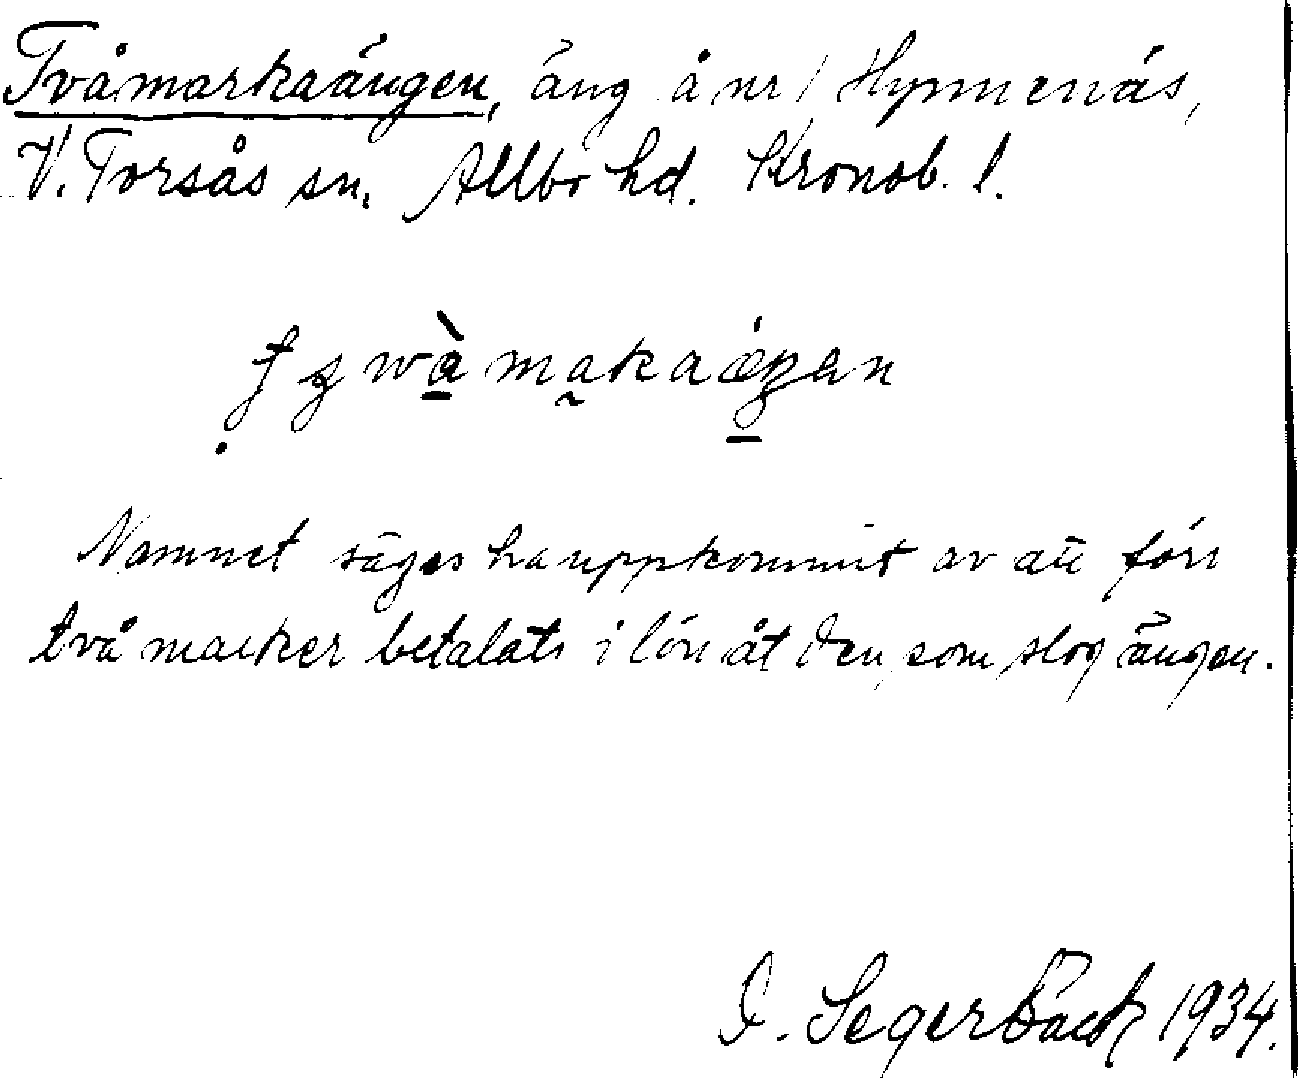 Tvåmarkaängen, äng å nr 1 Hymenäs,
V. Torsås sn. Allbo hd. Kronob. l.
Namnet säges ha uppkommit av att förr
två marker betalats i lön åt den, som slog ängen.
I. Segerbäck 1934.